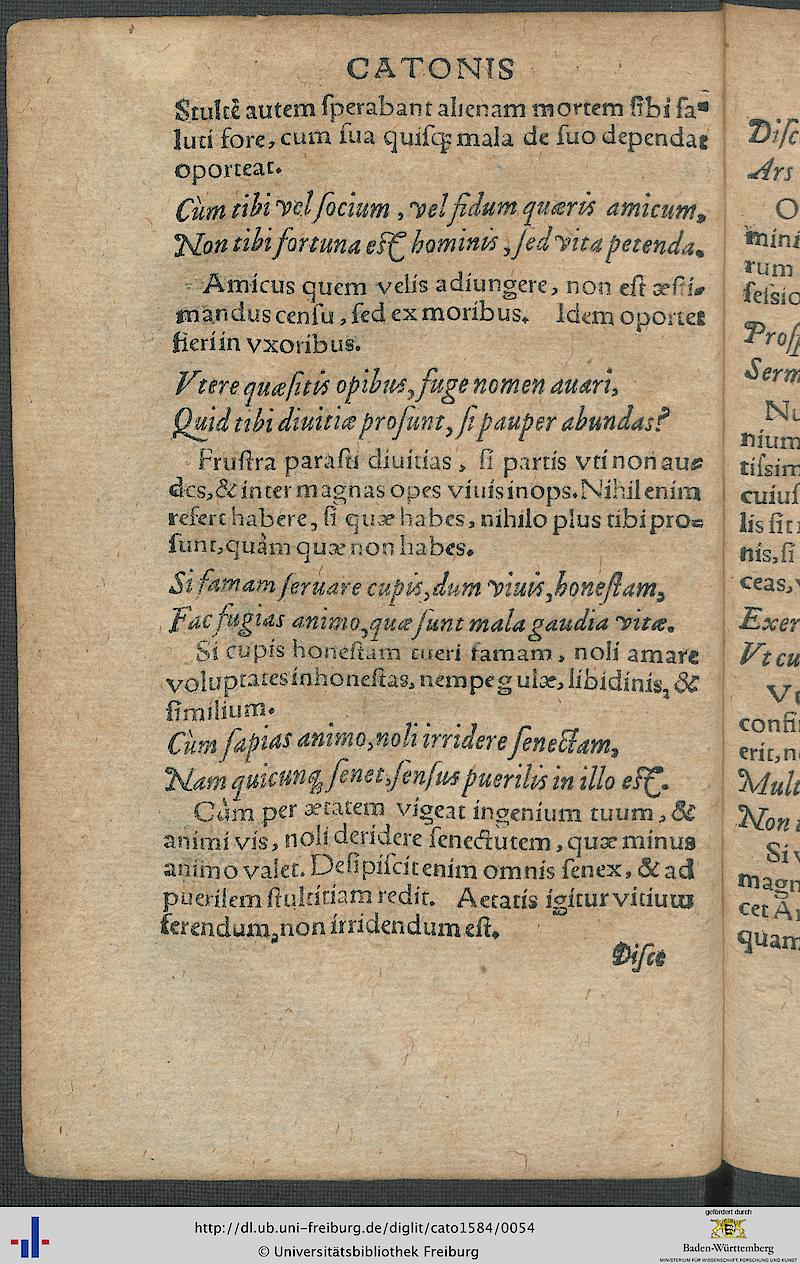 CATONIS
Stultè autem ſperabant alienam mortem ſibi ſa-
luti fore, cum ſua quiſq; mala de ſuo dependat
oporteat.
Cùm tibi vel ſocium, vel fidum quæris amicum,
Non tibi fortuna eſt hominis, ſed vita petenda.
Amicus quem velis adiungere, non eſt æſti-
mandus cenſu, ſed ex moribus. Idem oportet
fieri in vxoribus.
Vtere quæſitis opibus, fuge nomen auari,
Quid tibi diuitiæ proſunt, ſi pauper abundas?
Fruſtra paraſti diuitias, ſi partis vti non au-
des, & inter magnas opes viuis inops. Nihil enim
refert habere, ſi quæ habes, nihilo plus tibi pro-
ſunt, quàm quæ non habes.
Si famam ſeruare cupis, dum viuis, honeſtam,
Fac fugias animo, quæ ſunt mala gaudia vitæ.
Si cupis honeſtam tueri famam, noli amare
voluptates inhoneſtas, nempe gulæ, libidinis, &
ſimilium.
Cùm ſapias animo, noli irridere ſenectam,
Nam quicunq; ſenet, ſenſus puerilis in illo eſt.
Cùm per ætatem vigeat ingenium tuum, &
animi vis, noli deridere ſenectutem, quæ minus
animo valet. Deſipiſcit enim omnis ſenex, & ad
puerilem ſtultitiam redit. Aetatis igitur vitium
ferendum, non irridendum eſt.
Diſce
Diſc
Ars
O
mini
rum
ſeſsio
Proſp
Serm
Nu
nium
tiſsim
cuiuſ
lis ſit
nis, ſi
ceas, v
Exer
Vt cu
Vt
confi
erit, n
Mult
Non t
Si v
magn
cet A
quam
http://dl.ub.uni-freiburg.de/diglit/cato1584/0054
© Universitätsbibliothek Freiburg
gefördert durch
Baden-Württemberg
MINISTERIUM FÜR WISSENSCHAFT, FORSCHUNG UND KUNST